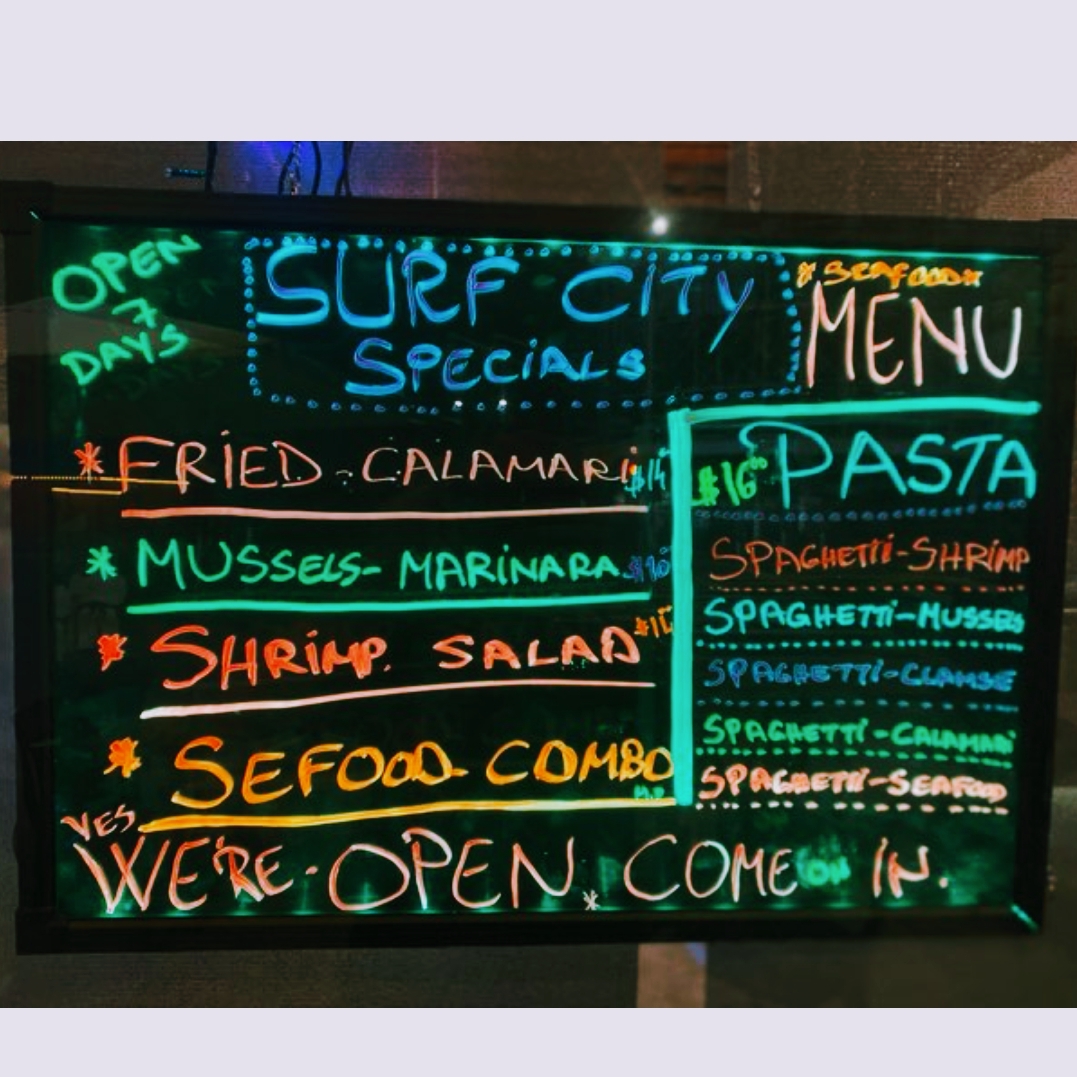 OPEN
7
DAYS
SURF CiTY
SPECiALS
*SEAFOOD*
MENU
* FRiED - CALAMARi $14
* MUSSELS- MARiNARA
* SHRiMP. SALAD
* SEFOOD- COMBO
M.P
$16⁰⁰ PASTA
SPAGHETTi-SHRiMP
SPAGHETTi-MUSSELS
SPAGHETTi-CLAMSE
SPAGHETTi-CALAMARi
SPAGHETTi-SEAFOOD
YES
WE'RE-OPEN * COME ON iN.